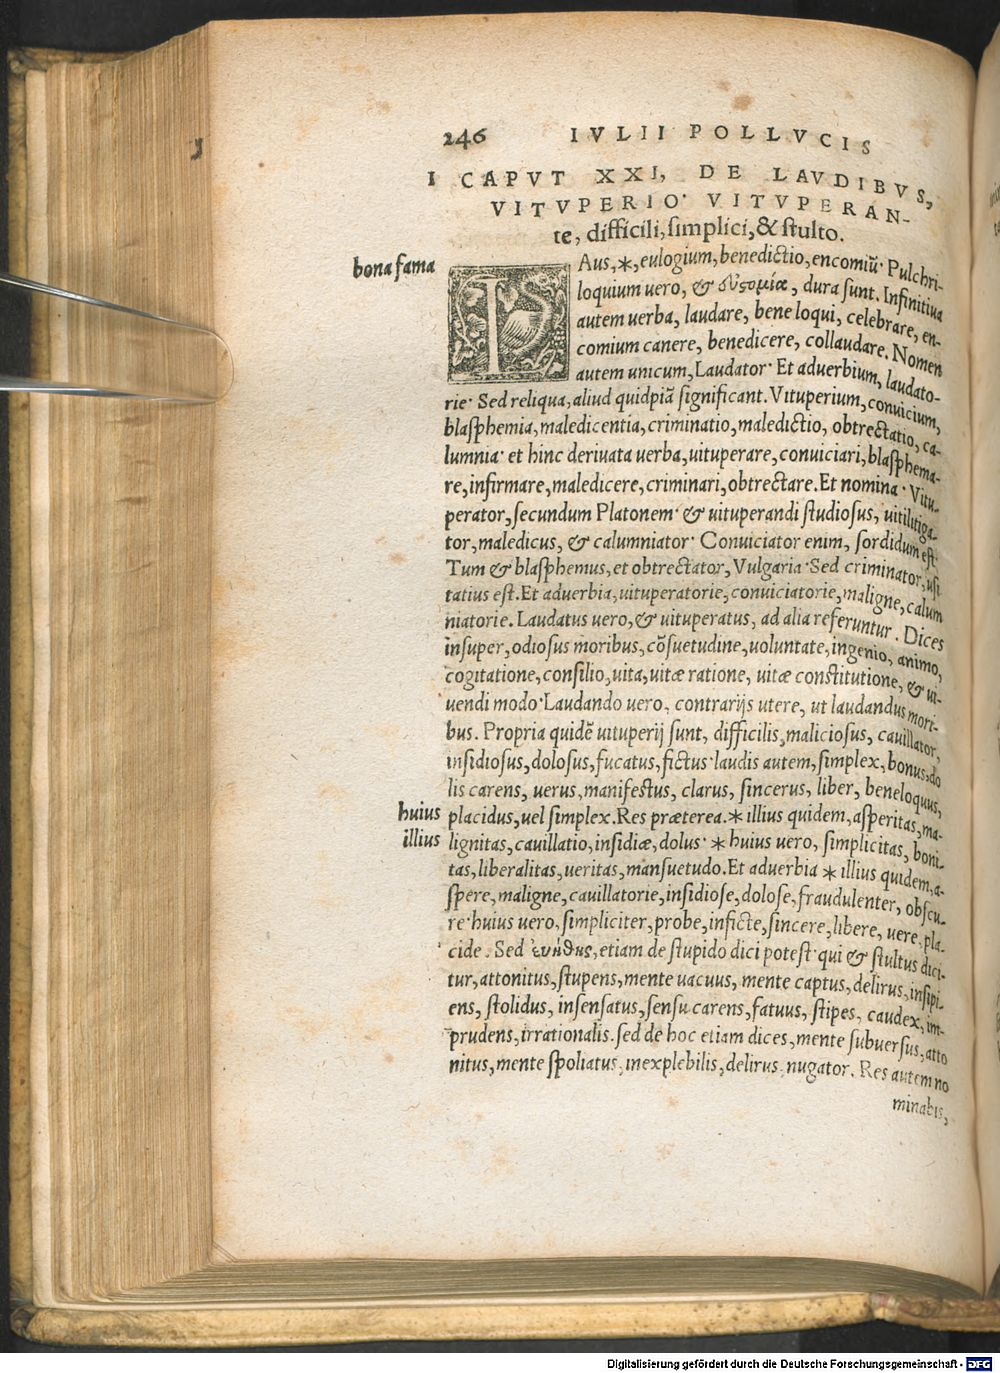 246 IVLII POLLVCIS
I CAPVT XXI, DE LAVDIBVS,
VITVPERIO· VITVPERAN-
te, difficili, simplici, & stulto.
bona fama
LAus, *, eulogium, benedictio, encomiũ· Pulchri-
loquium uero, & δυστομίαι, dura sunt. Infinitiua
autem uerba, laudare, bene loqui, celebrare, en-
comium canere, benedicere, collaudare. Nomen
autem unicum, Laudator· Et aduerbium, laudato-
rie· Sed reliqua, aliud quidpiã significant. Vituperium, conuicium,
blasphemia, maledicentia, criminatio, maledictio, obtrectatio, ca-
lumnia· et hinc deriuata uerba, uituperare, conuiciari, blasphema-
re, infirmare, maledicere, criminari, obtrectare. Et nomina· Vitu-
perator, secundum Platonem· & uituperandi studiosus, uitilitiga-
tor, maledicus, & calumniator· Conuiciator enim, sordidum est·
Tum & blasphemus, et obtrectator, Vulgaria· Sed criminator, usi
tatius est. Et aduerbia, uituperatorie, conuiciatorie, maligne, calum
niatorie. Laudatus uero, & uituperatus, ad alia referuntur. Dices
insuper, odiosus moribus, cõsuetudine, uoluntate, ingenio, animo,
cogitatione, consilio, uita, uitæ ratione, uitæ constitutione, & ui-
uendi modo· Laudando uero, contrarijs utere, ut laudandus mori-
bus. Propria quidẽ uituperij sunt, difficilis, maliciosus, cauillator,
insidiosus, dolosus, fucatus, fictus· laudis autem, simplex, bonus, do
lis carens, uerus, manifestus, clarus, sincerus, liber, beneloquus,
huius placidus, uel simplex. Res præterea. * illius quidem, asperitas, ma-
illius lignitas, cauillatio, insidiæ, dolus· * huius uero, simplicitas, boni-
tas, liberalitas, ueritas, mansuetudo. Et aduerbia * illius quidem, a-
spere, maligne, cauillatorie, insidiose, dolose, fraudulenter, obscu-
re· huius uero, simpliciter, probe, inficte, sincere, libere, uere, pla-
cide. Sed εὐήθης, etiam de stupido dici potest· qui & stultus dici-
tur, attonitus, stupens, mente uacuus, mente captus, delirus, insipi-
ens, stolidus, insensatus, sensu carens, fatuus, stipes, caudex, im-
prudens, irrationalis. sed de hoc etiam dices, mente subuersus, atto
nitus, mente spoliatus, inexplebilis, delirus, nugator. Res autem no
minabis,
Digitalisierung gefördert durch die Deutsche Forschungsgemeinschaft - DFG